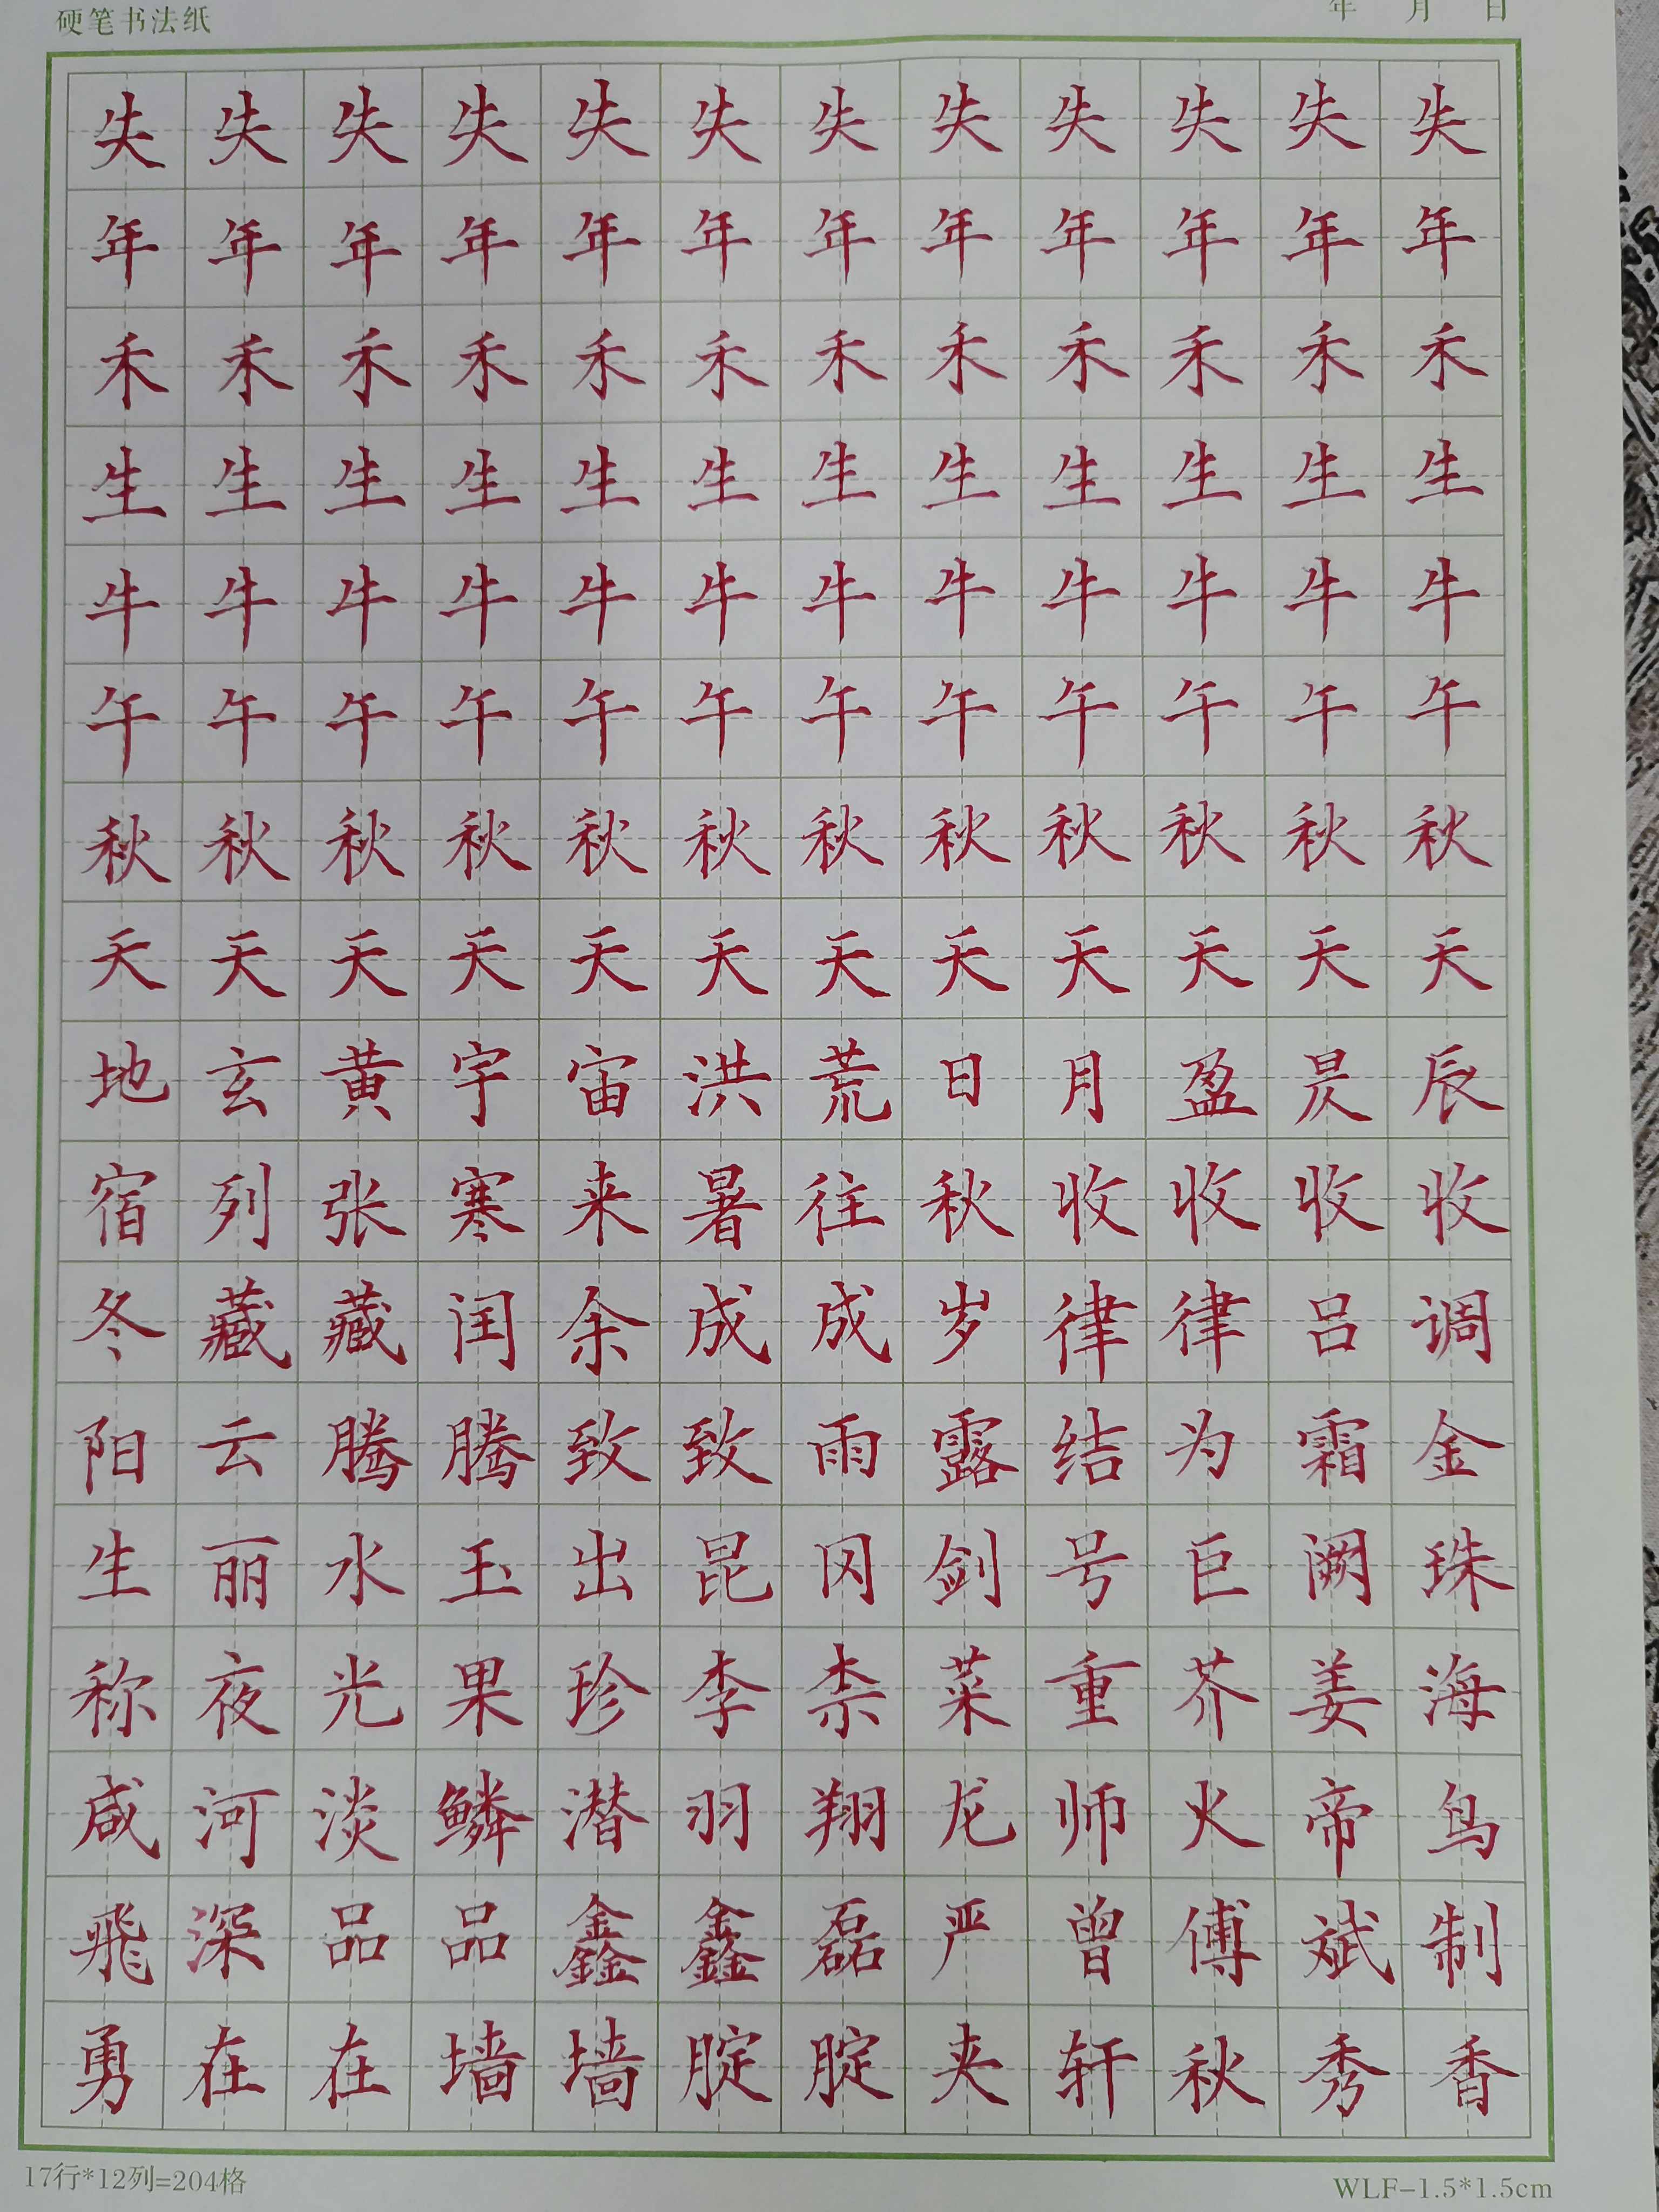 硬笔书法纸 年 月 日
失失失失失失失失失失失失
年年年年年年年年年年年年
禾禾禾禾禾禾禾禾禾禾禾禾
生生生生生生生生生生生生
牛牛牛牛牛牛牛牛牛牛牛牛
午午午午午午午午午午午午
秋秋秋秋秋秋秋秋秋秋秋秋
天天天天天天天天天天天天
地玄黄宇宙洪荒日月盈昃辰
宿列张寒来暑往秋收收收收
冬藏藏闰余成成岁律律吕调
阳云腾腾致致雨露结为霜金
生丽水玉出昆冈剑号巨阙珠
称夜光果珍李柰菜重芥姜海
咸河淡鳞潜羽翔龙师火帝鸟
飛深品品鑫鑫磊严曾傅斌制
勇在在墙墙腚腚夹轩秋秀香
17行*12列=204格 WLF-1.5*1.5cm